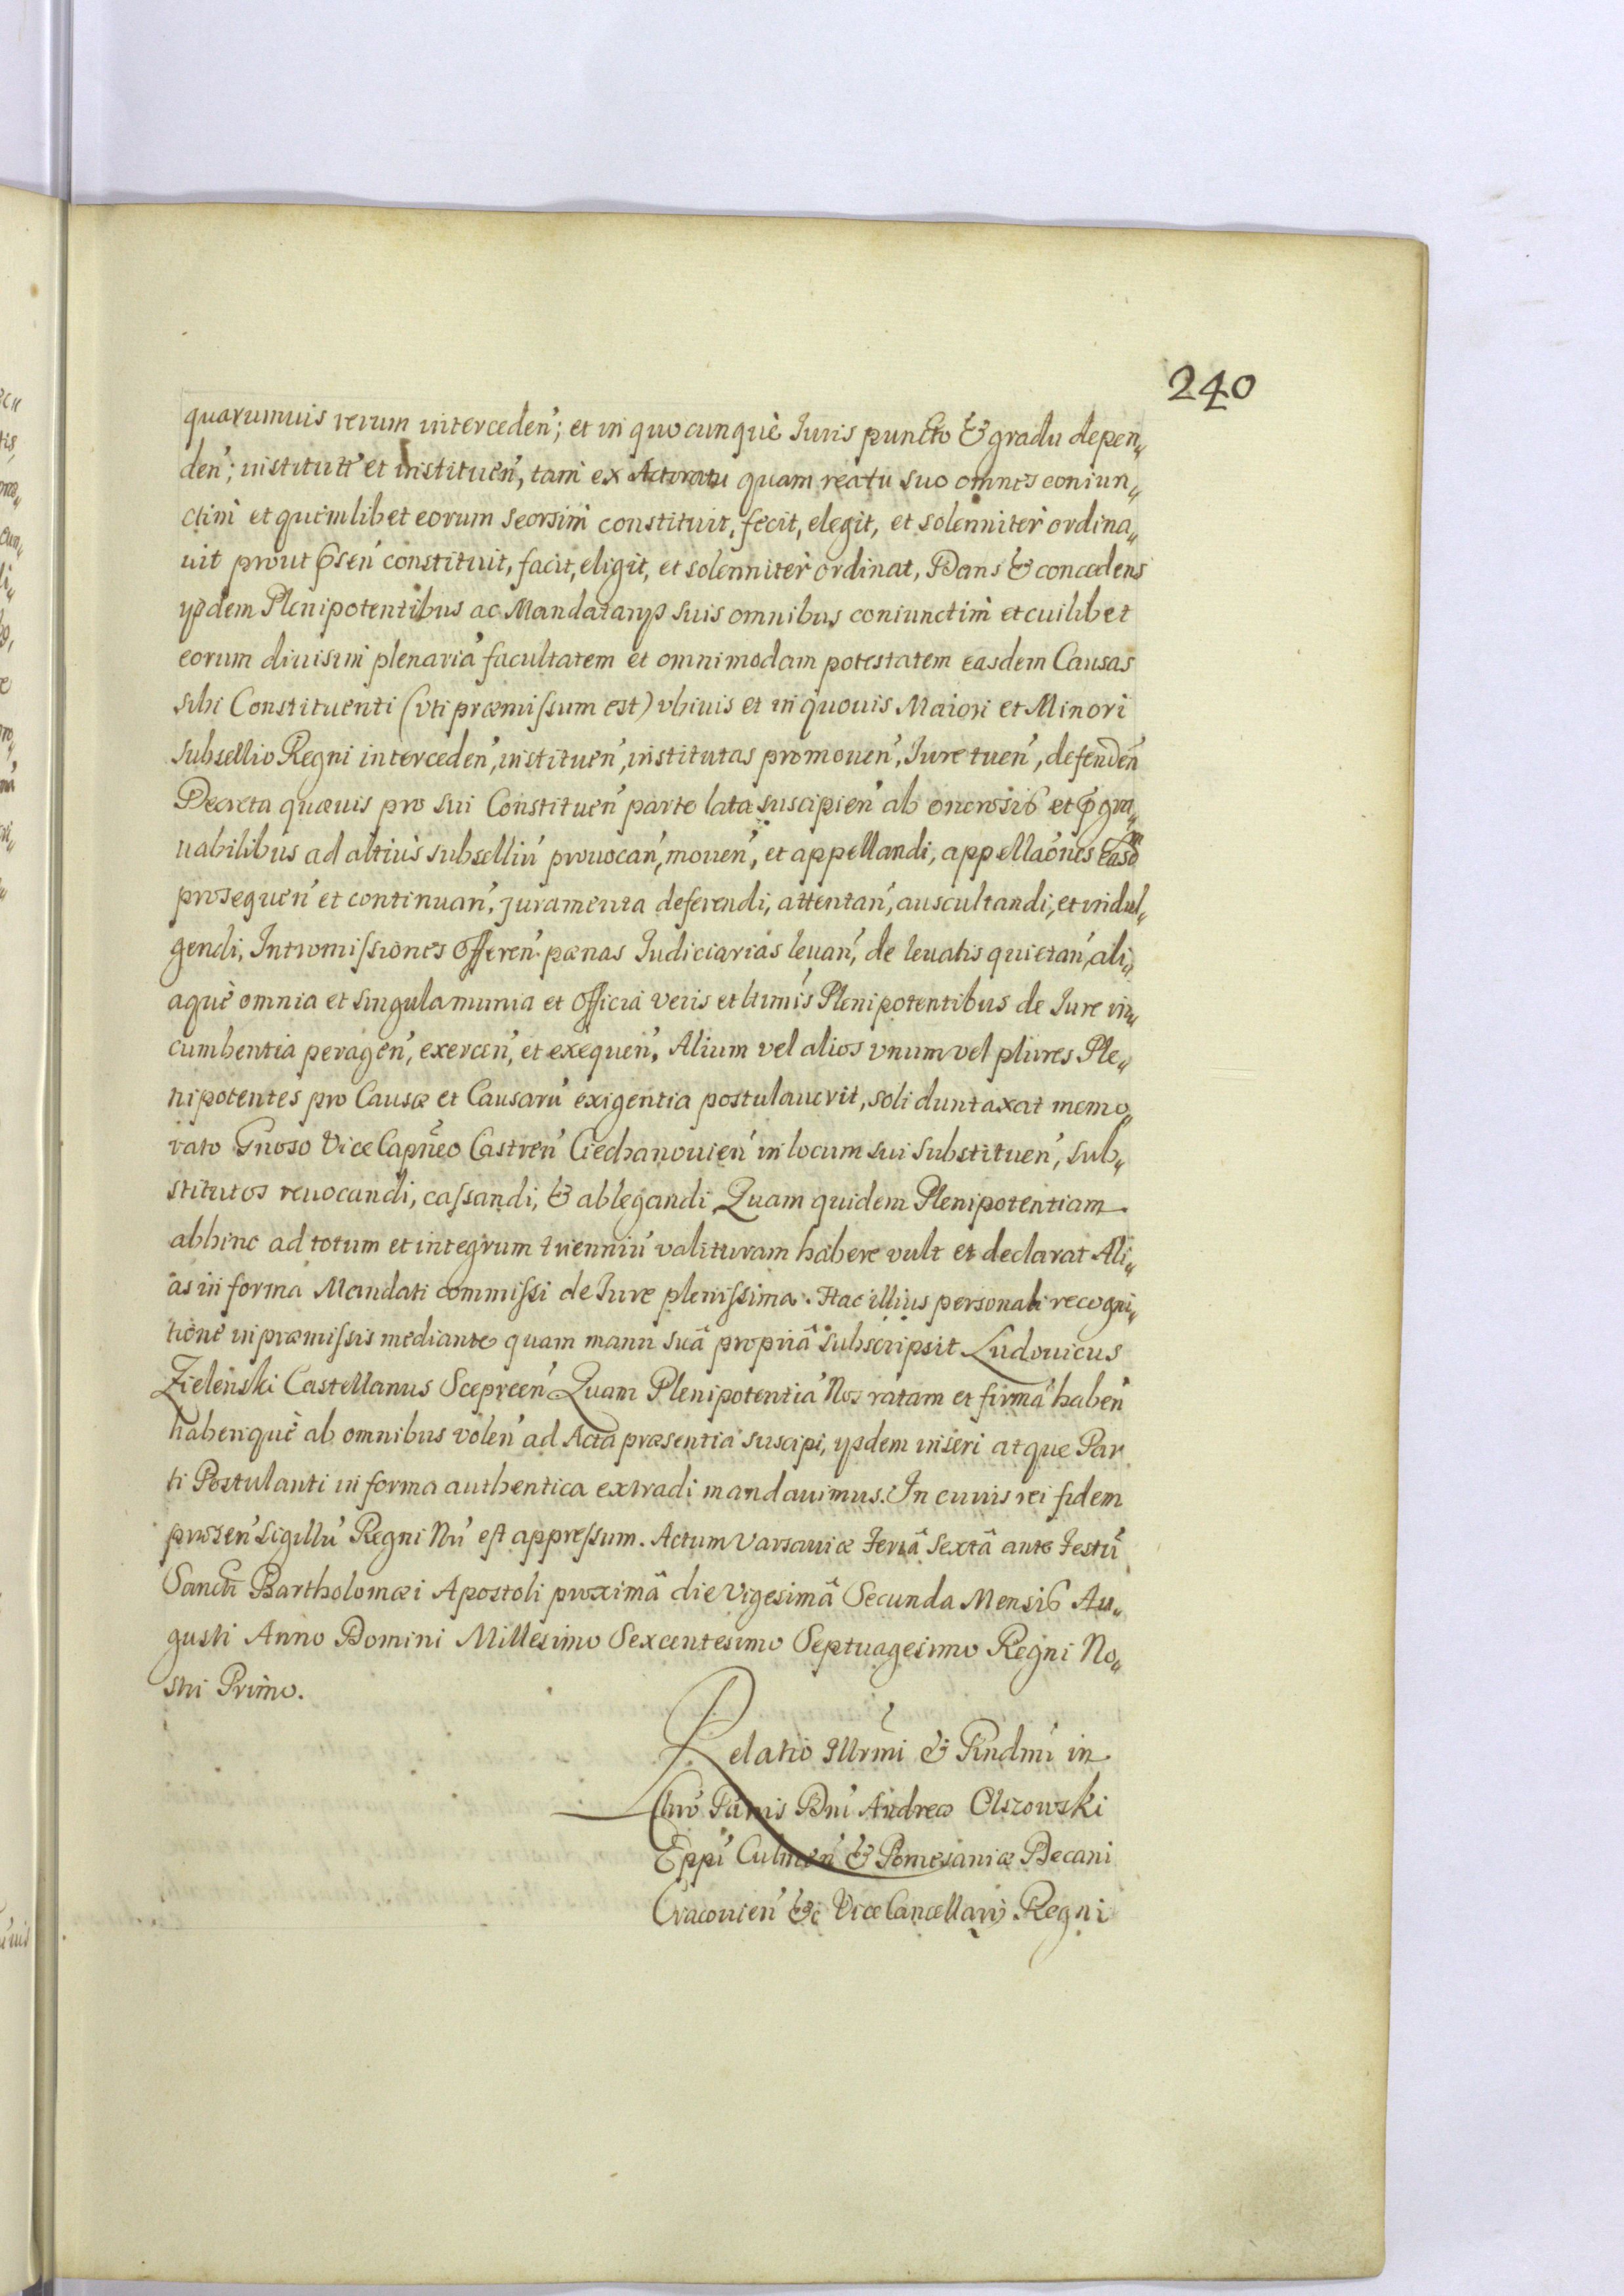 240
quarumuis rerum interceden'; et in quocunquè Iuris puncto & gradu depen„
den'; institutt' et instituen', tam ex Actoratu quam reatu suo omnes coniun„
ctim et quemlibet eorum seorsim constituit, fecit, elegit, et solenniter ordina„
uit prout pñsen' constituit, facit, eligit, et solenniter ordinat, Dans & concedens
ysdem Plenipotentibus ac Mandatarys suis omnibus coniunctim et cuilibet
eorum diuisim plenaria' facultatem et omnimodam potestatem easdem Causas
sibi Constituenti (vti præmissum est) vbiuis et in quouis Maiori et Minori
Subsellio Regni interceden', instituen', institutas promouen', Iure tuen', defenden'
Decreta quæuis pro sui Constituen' parte lata suscipien' ab onerosis et
uabilibus ad altius subselliu' prouocan', mouen', et appellandi, appellaões easd
prosequen' et continuan', juramenta deferendi, attentan', auscultandi, et indul„
gendi, Intromissiones Offeren' pœnas Iudiciarias leuan', de leuatis quietan', ali„
aquè omnia et singula munia et Officia veris et ltimis Plenipotentibus de Iure in„
cumbentia peragen', exercen', et exequen', Alium vel alios vnum vel plures Ple„
nipotentes pro Causæ et Causaru' exigentia postulauerit, soli duntaxat memo„
rato Gnoso Vice Capñeo Castren' Ciechanouien' in locum sui substituen', sub„
stitutos reuocandi, cassandi, & ablegandi Quam quidem Plenipotentiam
abhinc ad totum et integrum trienniu' valituram habere vult et declarat Ali„
as in forma Mandati commissi de Iure plenissima. Hac illius personali recogni„
tione in præmissis mediante quam manu suâ propriâ subscripsit Ludouicus
Zielenski Castellanus Scepreen' Quam Plenipotentia' Nos ratam et firma' haben'
haberiquè ab omnibus volen' ad Acta præsentia suscipi, ysdem inseri atque Par
ti Postulanti in forma authentica extradi mandauimus. In cuius rei fidem
præsen' Sigillu' Regni Nri' est appressum. Actum Varsauiæ Feriâ Sextâ ante Festu'
Sancti Bartholomæi Apostoli proximâ die Vigesimâ Secunda Mensis Au„
gusti Anno Domini Millesimo Sexcentesimo Septuagesimo Regni No„
stri Primo.
Relatio Illrmi & Rndmi in
Chro Patris Dni Andreæ Olszowski
Eppi Culmen' & Pomesaniæ Decani
Cracouien' &c Vice Cancellarij Regni